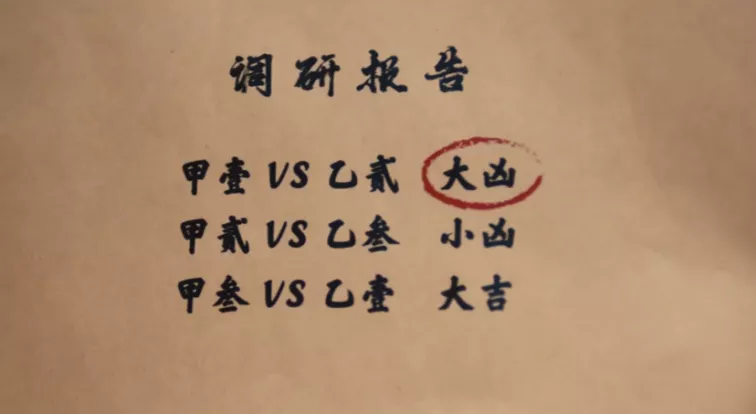 调研报告
甲壹 VS 乙贰 大凶
甲贰 VS 乙叁 小凶
甲叁 VS 乙壹 大吉